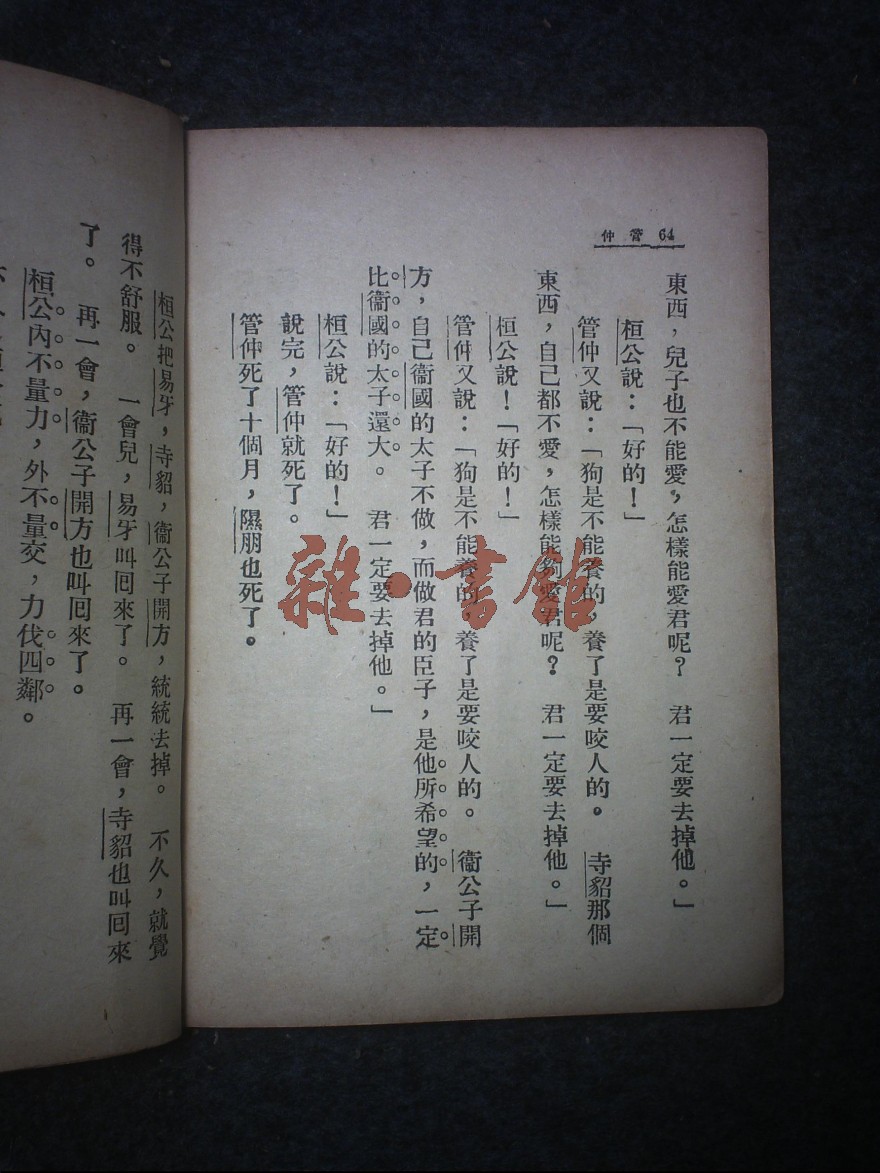 仲管 64
東西，兒子也不能愛，怎樣能愛君呢？ 君一定要去掉他。」
桓公說：「好的！」
管仲又說：「狗是不能養的，養了是要咬人的。 寺貂那個
東西，自己都不愛，怎樣能夠愛君呢？ 君一定要去掉他。」
桓公說！「好的！」
管仲又說：「狗是不能養的，養了是要咬人的。 衞公子開
方，自己衞國的太子不做，而做君的臣子，是他所希望的，一定
比衞國的太子還大。 君一定要去掉他。」
桓公說：「好的！」
說完，管仲就死了。
管仲死了十個月，隰朋也死了。
桓公把易牙，寺貂，衞公子開方，統統去掉。 不久，就覺
得不舒服。 一會兒，易牙叫囘來了。 再一會，寺貂也叫囘來
了。 再一會，衞公子開方也叫囘來了。
桓公內不量力，外不量交，力伐四鄰。
雜·書館